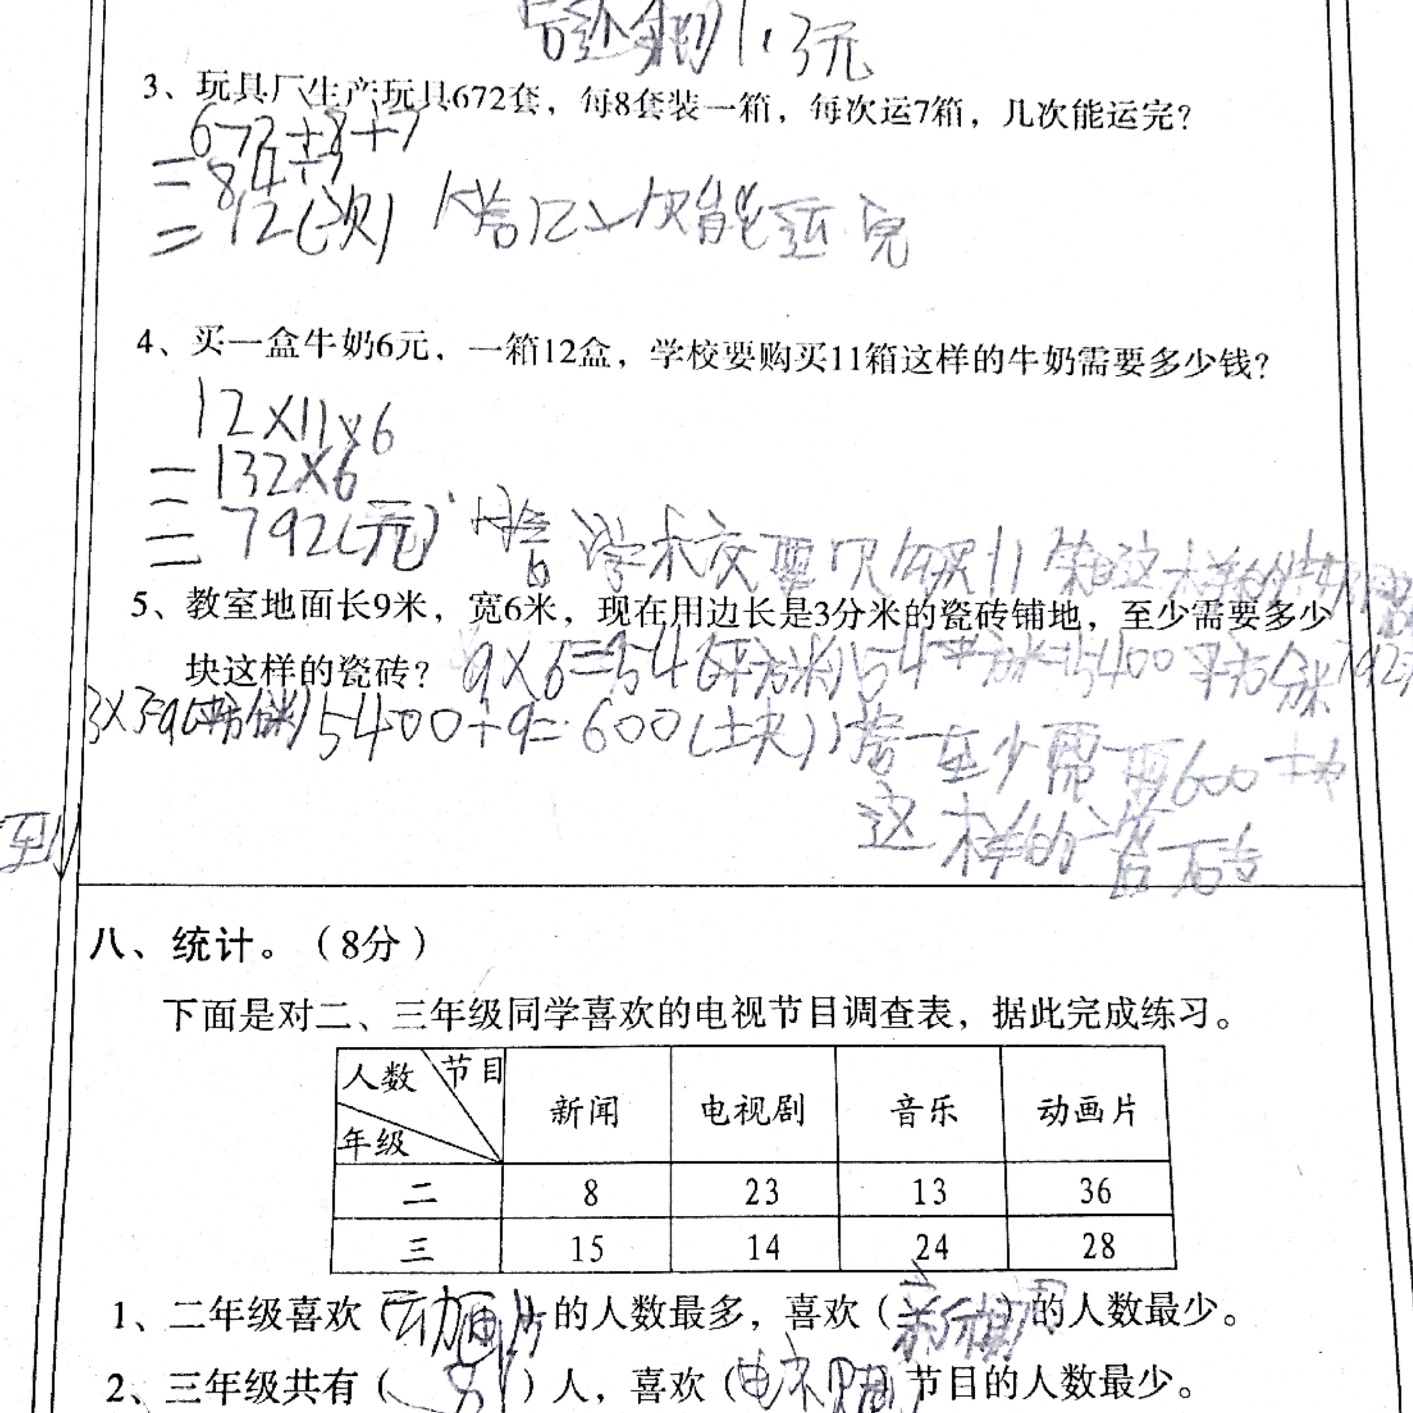 1.3元
3、玩具厂生产玩具672套，每8套装一箱，每次运7箱，几次能运完？
672÷8÷7
=84÷7
=12(次) 答12次能运完
4、买一盒牛奶6元，一箱12盒，学校要购买11箱这样的牛奶需要多少钱？
12×11×6
=132×6
=792(元) 答 学校要购买11箱这样的牛
5、教室地面长9米，宽6米，现在用边长是3分米的瓷砖铺地，至少需要多少
块这样的瓷砖？ 9×6=54(平方米) 54平方米=5400平方分米
3×3=9(平方分米) 5400÷9=600(块) 答至少需要600块
这样的瓷砖
八、统计。（8分）
下面是对二、三年级同学喜欢的电视节目调查表，据此完成练习。
人数 节目 年级 新闻 电视剧 音乐 动画片
二 8 23 13 36
三 15 14 24 28
1、二年级喜欢（动画片）的人数最多，喜欢（新闻）的人数最少。
2、三年级共有（81）人，喜欢（电视剧）节目的人数最少。